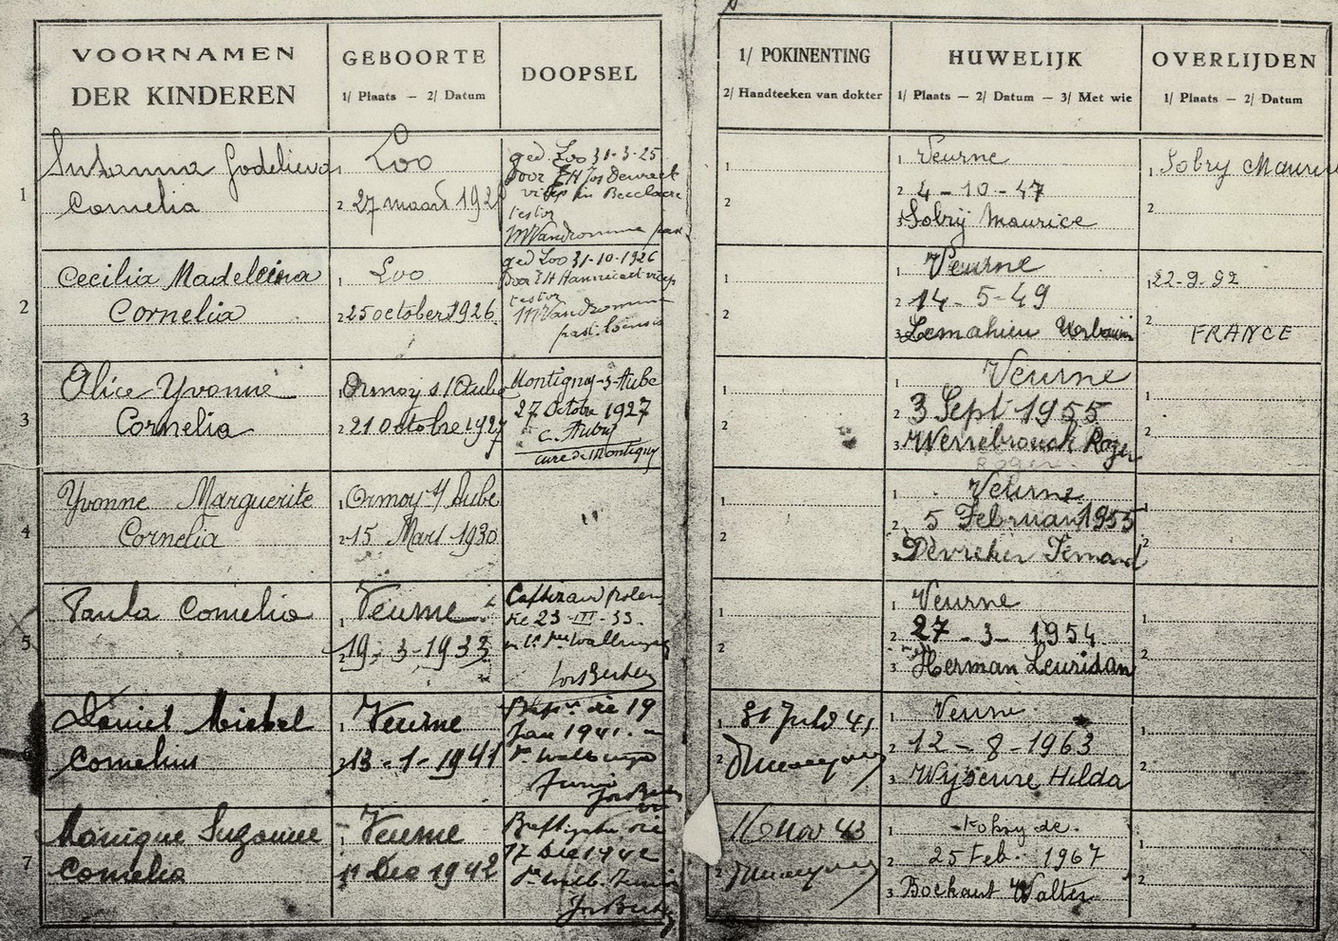 VOORNAMEN
DER KINDEREN
GEBOORTE
1/ Plaats — 2/ Datum
DOOPSEL
1/ POKINENTING
2/ Handteeken van dokter
HUWELIJK
1/ Plaats — 2/ Datum — 3/ Met wie
OVERLIJDEN
1/ Plaats — 2/ Datum
1
Suzanna Godelieva
Cornelia
1 Loo
2 27 maart
ged. Loo 31-3-25
door EH Jos
in Becelaere
testor
M Vandromme
1
2
1 Veurne
2 4-10-47
3 Sobry Maurice
1 Sobry Maurice
2
2
Cecilia Madeleina
Cornelia
1 Loo
2 25 october 1926
ged Loo 31-10-1926
door EH
testor
M Vandromme
past. Loensis
1
2
1 Veurne
2 14-5-49
3 Lemahieu Urbain
1 22-9-92
2 FRANCE
3
Alice Yvonne
Cornelia
1 Ormoy s/Aube
2 21 octobre 1927
Montigny-s-Aube
27 Octobre 1927
C. Aubry
curé de Montigny
1
2
1 Veurne
2 3 Sept 1955
3 Werrebrouck Roger
Roger
1
2
4
Yvonne Marguerite
Cornelia
1 Ormoy s/Aube
2 15 Mars 1930
1
2
1 Veurne
2 5 Februari 1955
3 Devreker Fernand
1
2
5
Paula Cornelia
1 Veurne
2 19-3-1933
die 23-III-33.
1
2
1 Veurne
2 27-3-1954
3 Herman Leuridan
1
2
Daniel Michel
Cornelius
1 Veurne
2 13-1-1941
die 19
Jan 1941.
1
2
1 Veurne
2 12-8-1963
3 Wyseure Hilda
1
2
7
Monique Suzanne
Cornelia
1 Veurne
2 11 Dec 1942
die
17 Dec 1942
16 Nov 43
2
1
2 25 Feb. 1967
3 Boekaut Walter
1
2